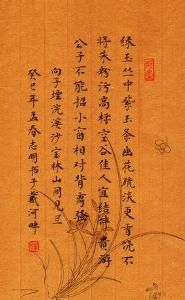 绿玉丛中紫玉条幽花疏淡更香饶不
将朱粉污高标空谷佳人宜结伴贵游
公子不能招小窗相对诵离骚
向子諲浣溪沙宝林山间见兰
癸巳年孟春志明书于戴河畔